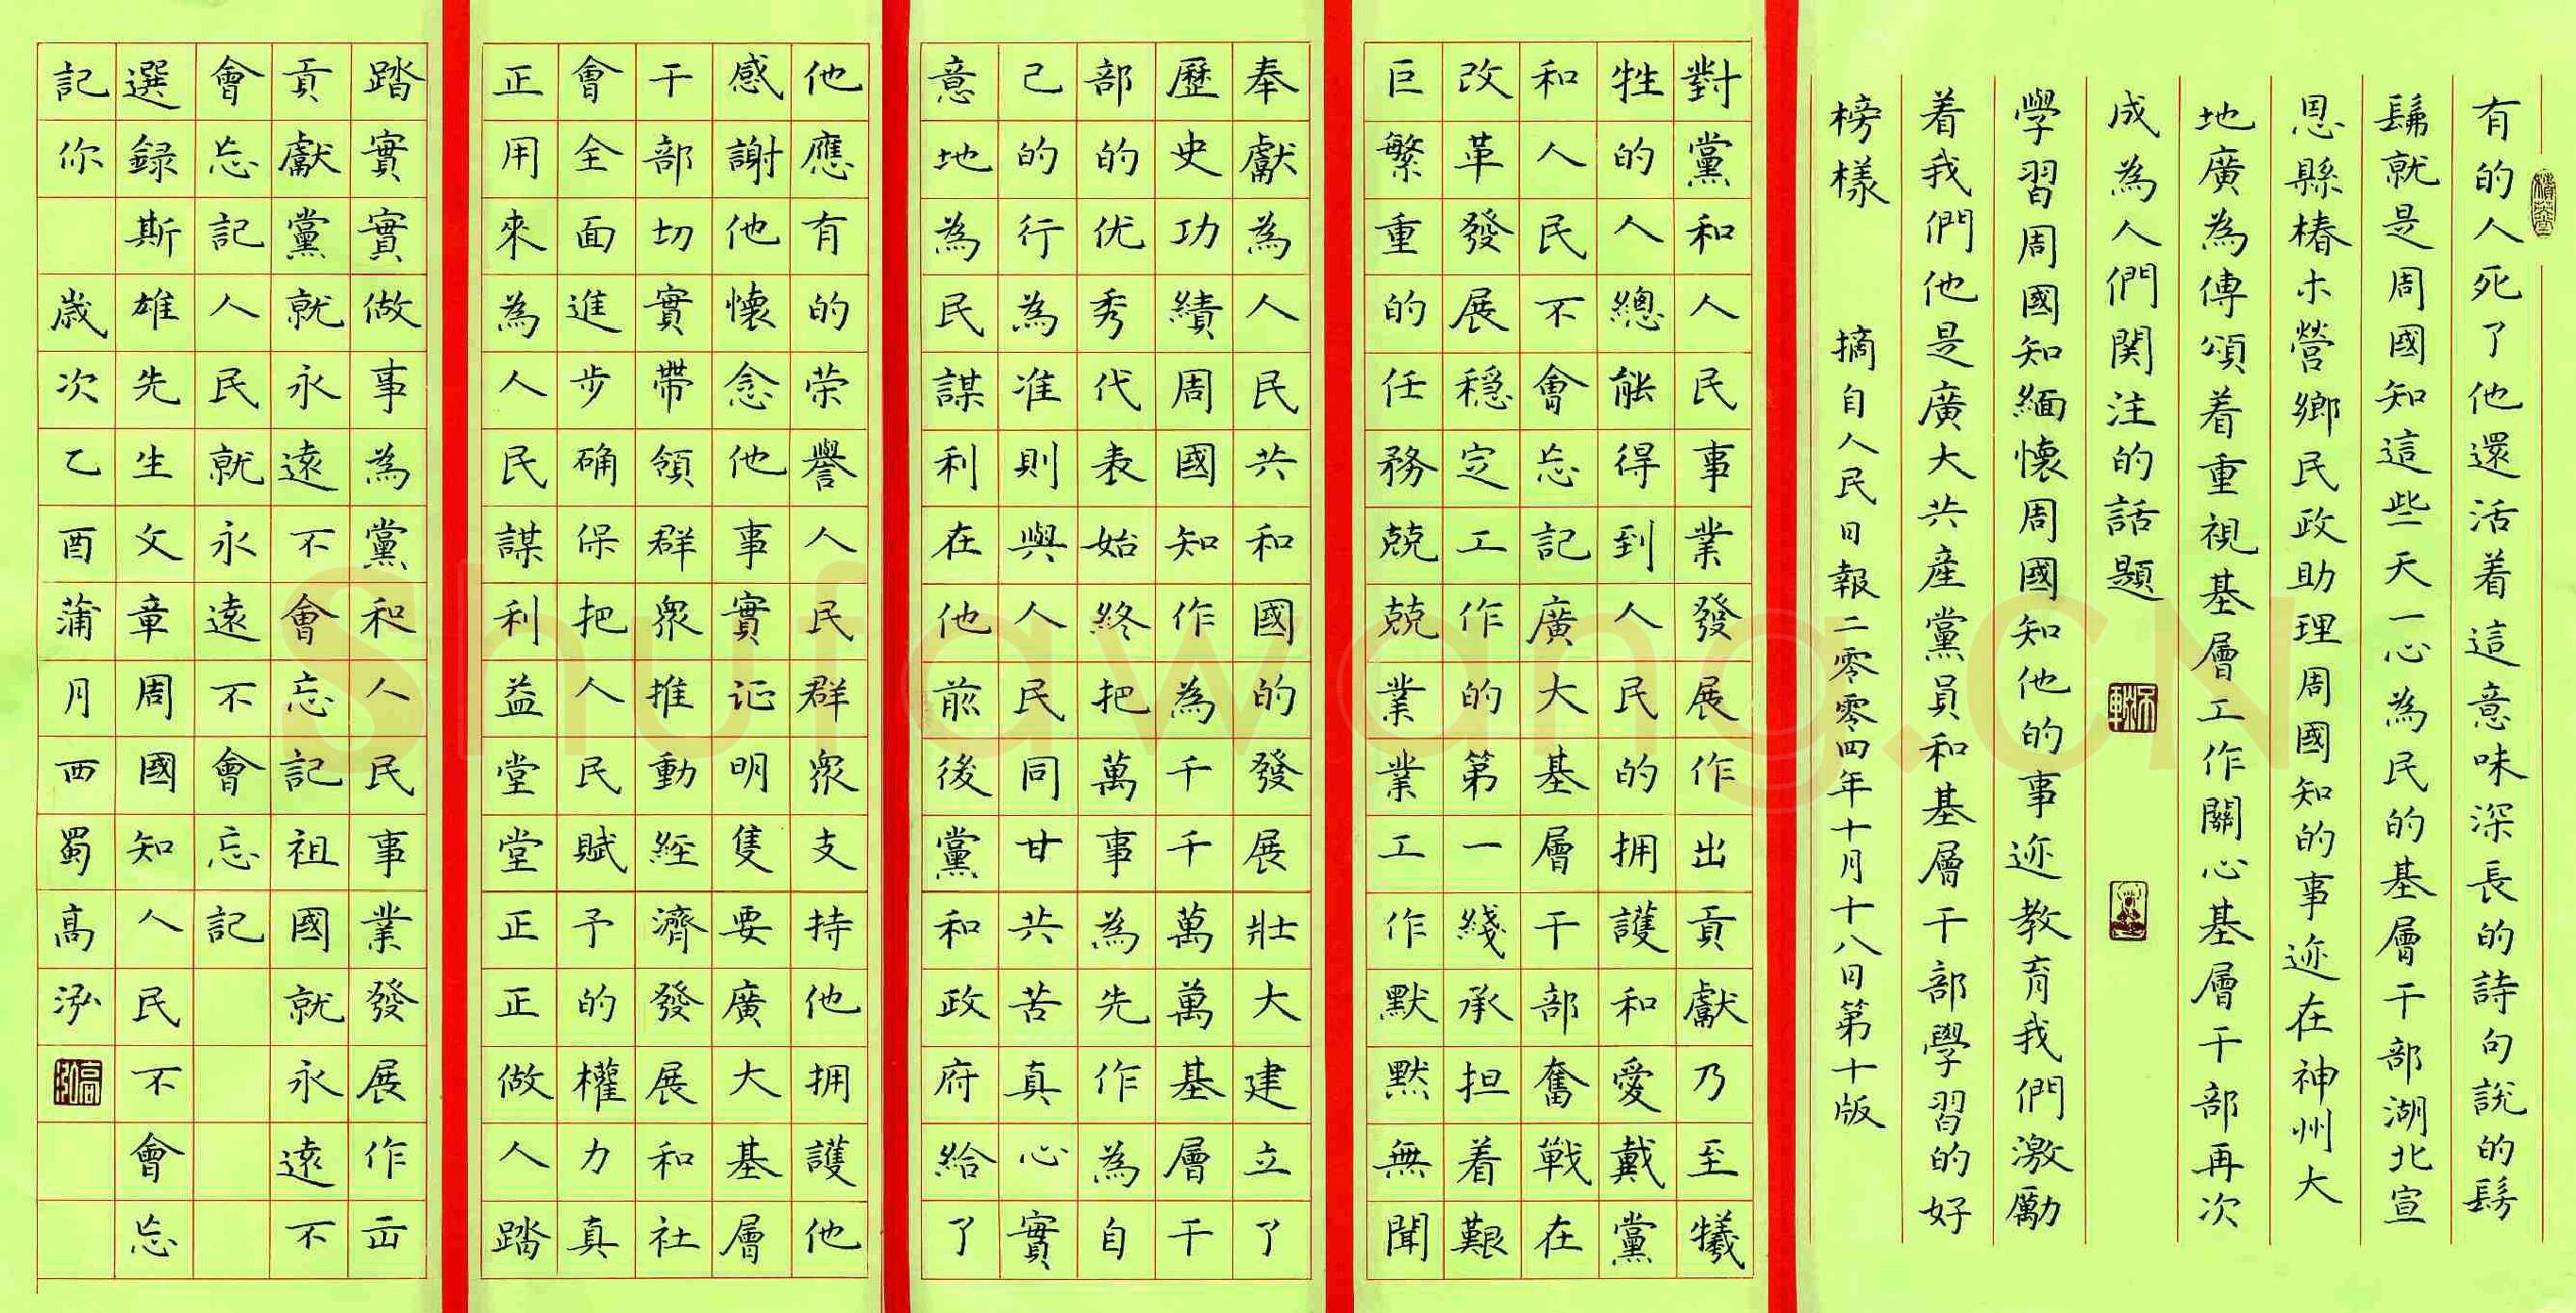 有的人死了他還活着這意味深長的詩句說的髣
髴就是周國知這些天一心為民的基層干部湖北宣
恩縣椿木營鄉民政助理周國知的事迹在神州大
地廣為傳頌着重視基層工作關心基層干部再次
成為人們関注的話題
學習周國知緬懷周國知他的事迹教育我們激勵
着我們他是廣大共產黨員和基層干部學習的好
榜樣 摘自人民日報二零零四年十月十八日第十版
對黨和人民事業發展作出貢獻乃至犧
牲的人總能得到人民的拥護和愛戴黨
和人民不會忘記廣大基層干部奮戰在
改革發展穩定工作的第一綫承担着艱
巨繁重的任務兢兢業業工作默默無聞
奉獻為人民共和國的發展壯大建立了
歷史功績周國知作為千千萬萬基層干
部的优秀代表始終把萬事為先作為自
己的行為准則與人民同甘共苦真心實
意地為民謀利在他前後黨和政府給了
他應有的荣譽人民群衆支持他拥護他
感謝他懷念他事實证明隻要廣大基層
干部切實帶領群衆推動經濟發展和社
會全面進步确保把人民賦予的權力真
正用來為人民謀利益堂堂正正做人踏
踏實實做事為黨和人民事業發展作出
貢獻黨就永遠不會忘記祖國就永遠不
會忘記人民就永遠不會忘記
選録斯雄先生文章周國知人民不會忘
記你 歲次乙酉蒲月西蜀高泓
高泓
Shufawang.CN